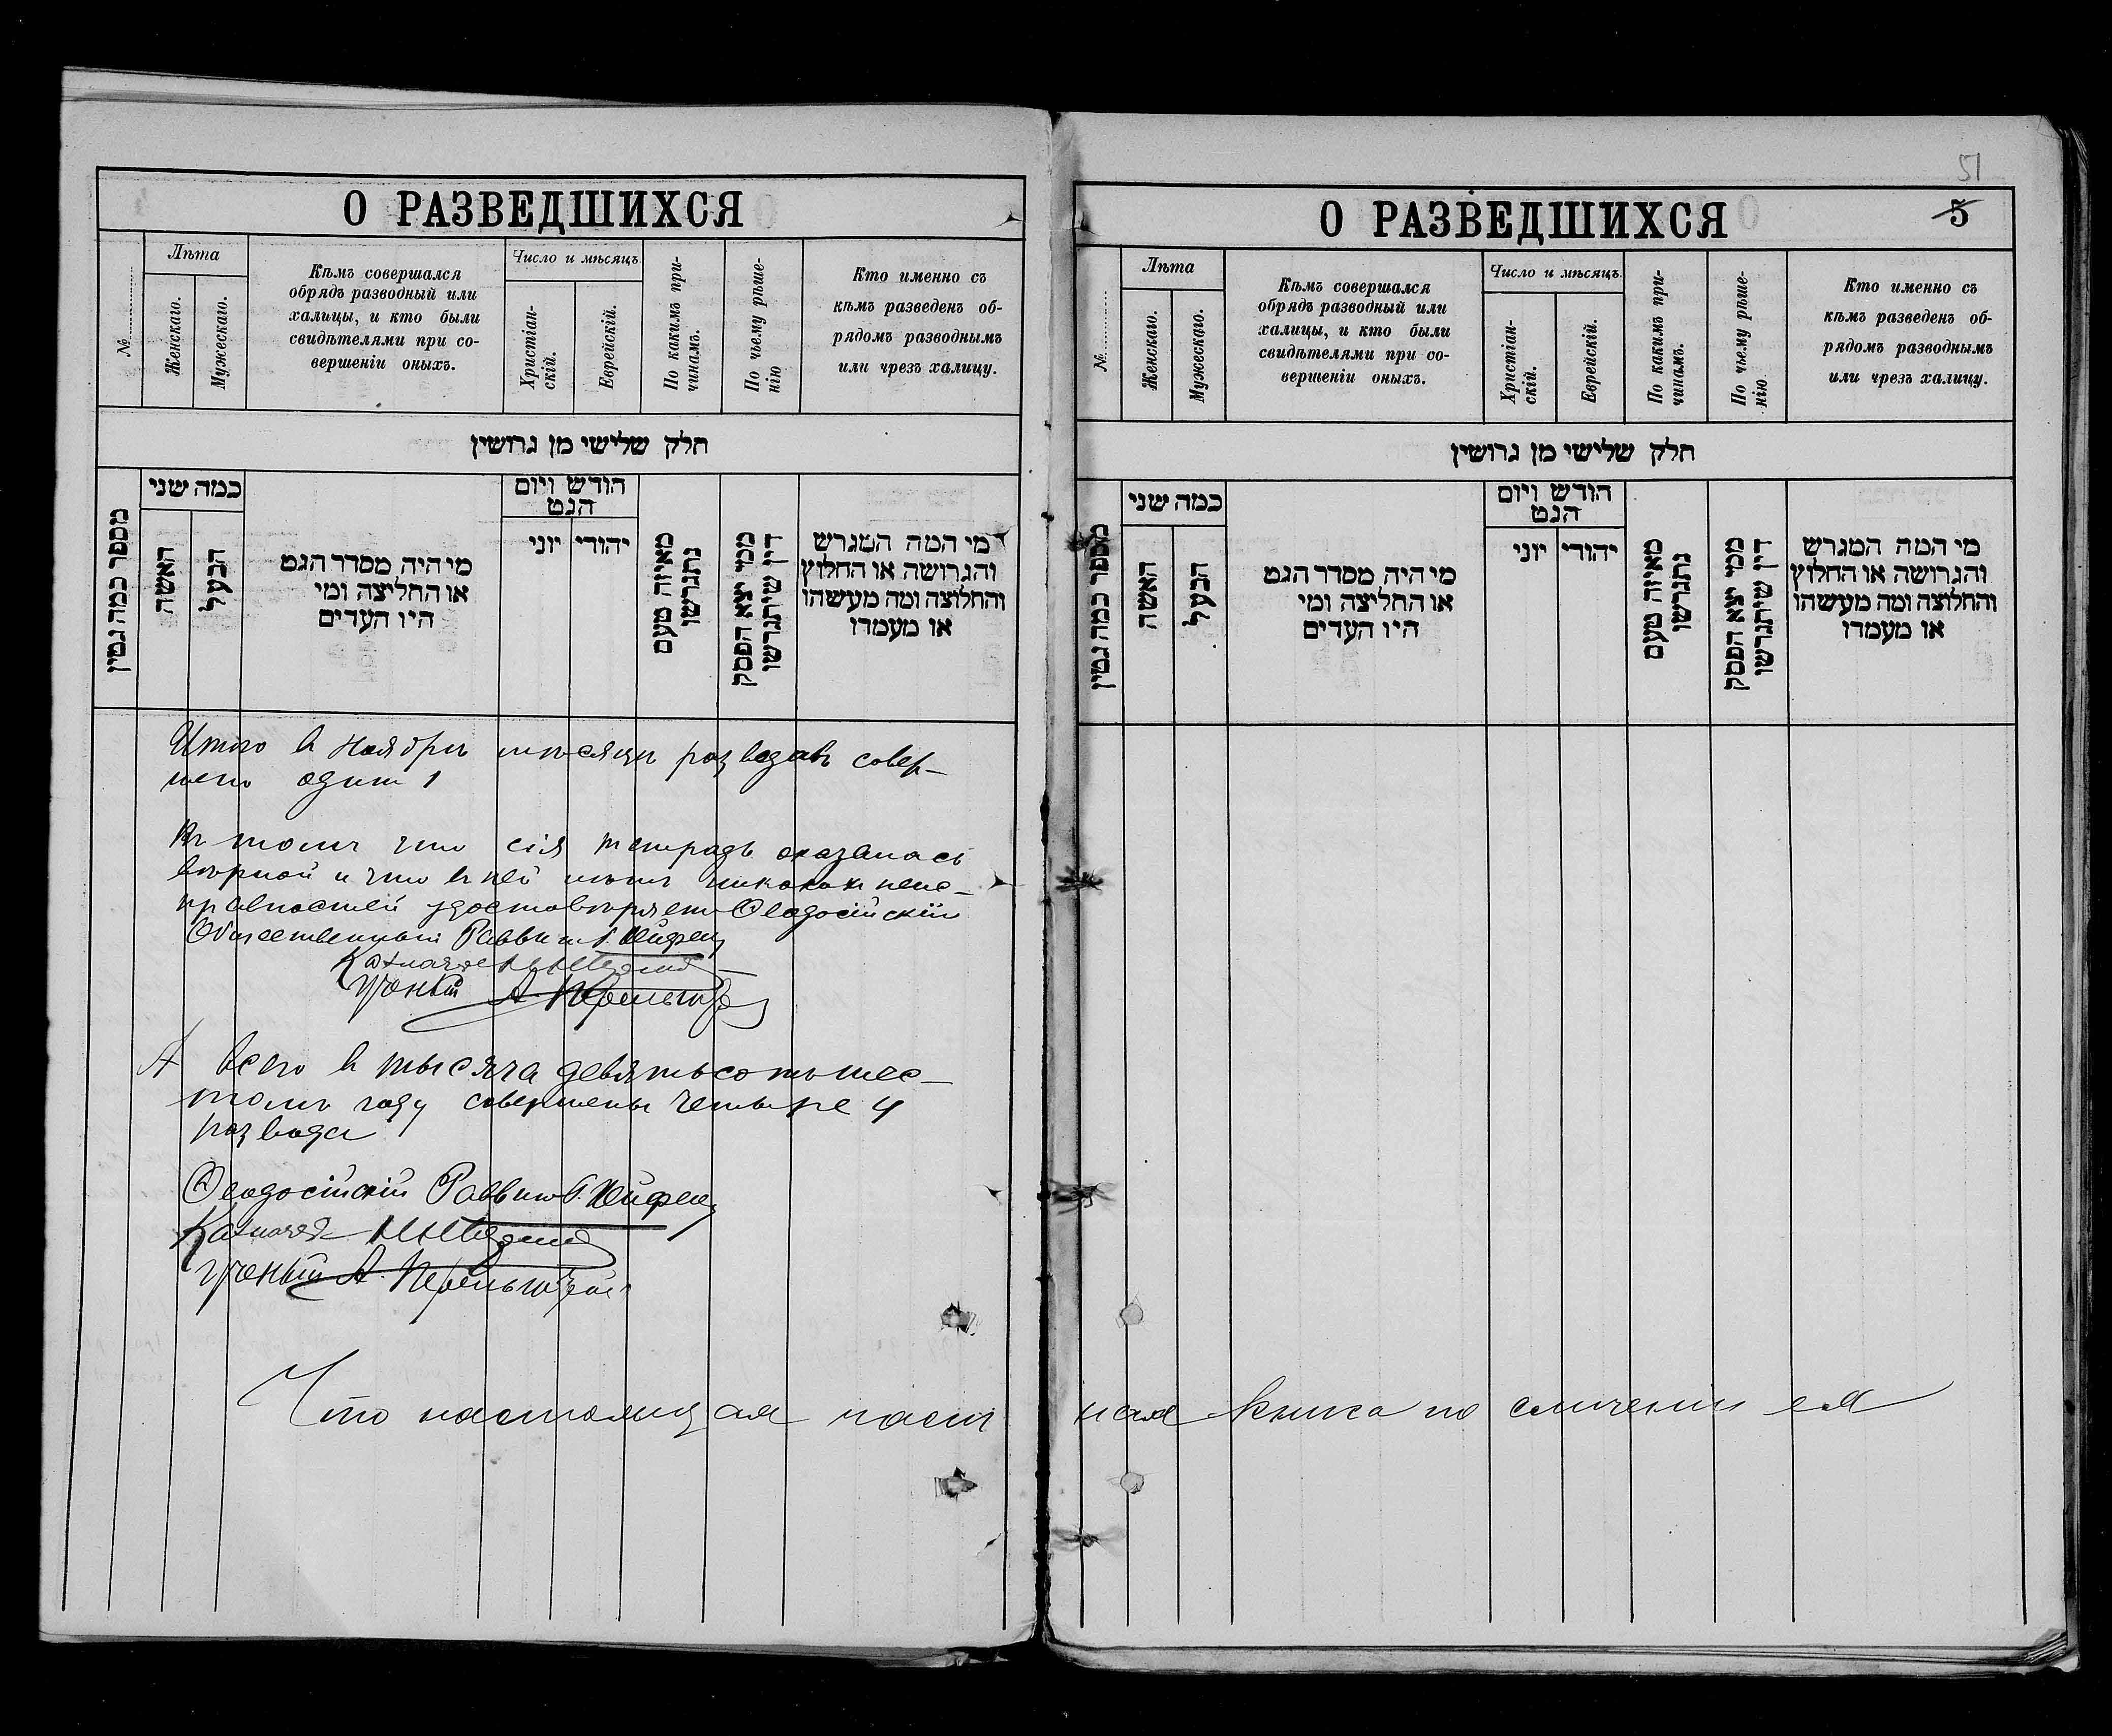 О РАЗВЕДШИХСЯ
№
Лѣта
Женскаго.
Мужескаго.
Кѣмъ совершался
обрядъ разводный или
халицы, и кто были
свидѣтелями при со-
вершеніи оныхъ.
Число и мѣсяцъ.
Христіан-
скій.
Еврейскій.
По какимъ при-
чинамъ.
По чьему рѣше-
нію
Кто именно съ
кѣмъ разведенъ об-
рядомъ разводнымъ
или чрезъ халицу.
חלק שלישי מן גרושין
מספר כמה גטין
כמה שני
האשה
הבעל
מי היה מסדר הגט
או החליצה ומי
היו העדים
חודש ויום
הגט
יהודי יוני
מאיזה טעם
נתגרשו
ממי יצא הפסק
דין שיתגרשו
מי המה המגרש
והגרושה או החלוץ
והחלוצה ומה מעשהו
או מעמדו
Итого в Ноябрѣ мѣсяцѣ разводовъ совер-
шено одинъ 1
Въ томъ что сія тетрадь оказалась
вѣрной и что в ней нѣтъ никакихъ неис-
правностей удостовѣряетъ Ѳеодосійскій
Общественный Раввинъ
Казначей
Ученый А.
А всего в тысяча девятьсотъ шес-
томъ году совершены четыре 4
развода
Ѳеодосійскій Раввинъ
Казначей
Ученый А.
Что настоящая част
51
О РАЗВЕДШИХСЯ
5
№
Лѣта
Женскаго.
Мужескаго.
Кѣмъ совершался
обрядъ разводный или
халицы, и кто были
свидѣтелями при со-
вершеніи оныхъ.
Число и мѣсяцъ.
Христіан-
скій.
Еврейскій.
По какимъ при-
чинамъ.
По чьему рѣше-
нію
Кто именно съ
кѣмъ разведенъ об-
рядомъ разводнымъ
или чрезъ халицу.
חלק שלישי מן גרושין
מספר כמה גטין
כמה שני
האשה
הבעל
מי היה מסדר הגט
או החליצה ומי
היו העדים
חודש ויום
הגט
יהודי יוני
מאיזה טעם
נתגרשו
ממי יצא הפסק
דין שיתגרשו
מי המה המגרש
והגרושה או החלוץ
והחלוצה ומה מעשהו
או מעמדו
ная книга по сличеніи ея